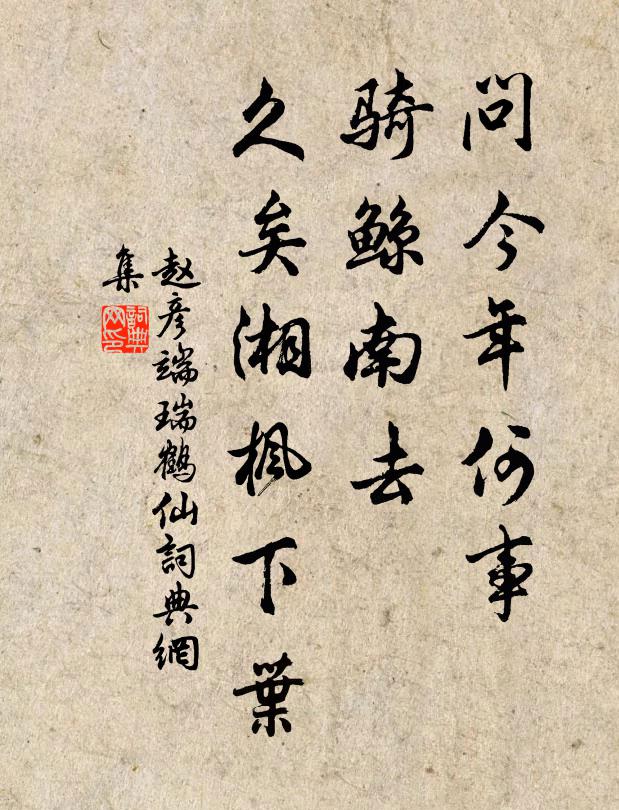 问今年何事
骑鲸南去
久矣湘枫下葉
赵彦端瑞鹤仙詞典網
集
詞典網印